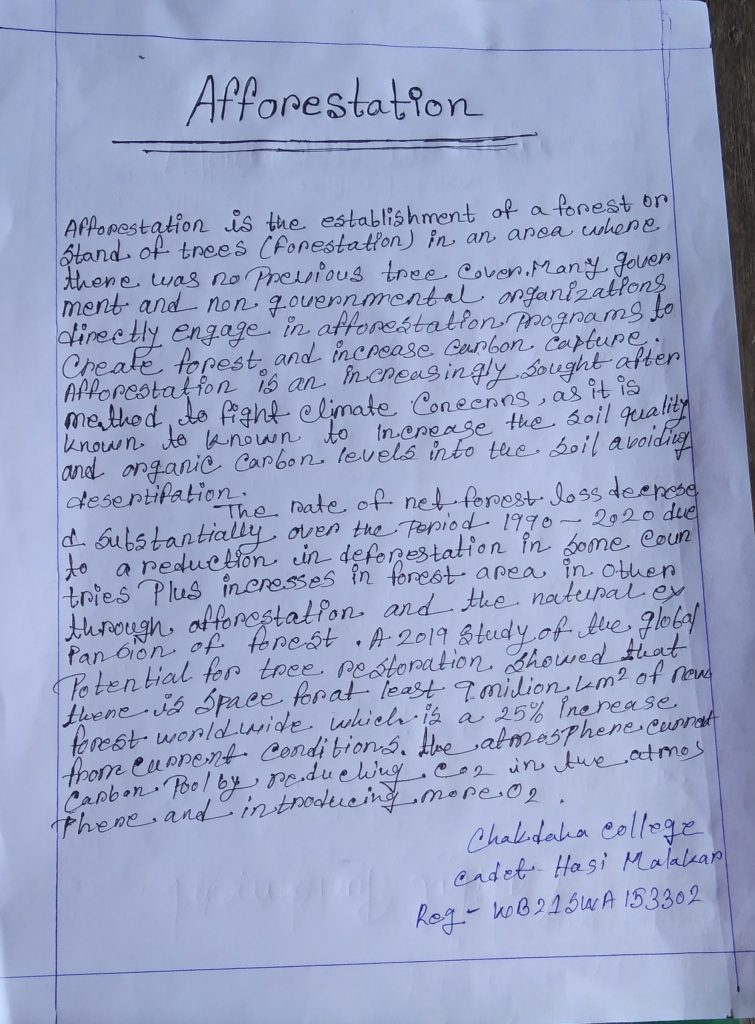 Afforestation
Afforestation is the establishment of a forest or
stand of trees (forestation) in an area where
there was no previous tree cover. Many gover
ment and non governmental organizations
directly engage in afforestation programs to
Create forest and increase carbon capture.
Afforestation is an increasingly sought after
method to fight climate Concerns, as it is
known to known to increase the soil quality
and organic Carbon levels into the soil avoiding
desertifation.
The rate of net forest loss decrese
d substantially over the Period 1990 - 2020 due
to a reduction in deforestation in some coun
tries Plus incresses in forest area in other
through afforestation and the natural ex
pansion of forest. A 2019 study of the global
Potential for tree restoration showed that
there is space for at least 9 milion km2 of new
forest world wide which is a 25% increase
from current conditions. the atmosphere current
Carbon Pool by reduching CO2 in the atmos
Phere and introducing more O2.
Chakdaha College
cadet- Hasi Malakar
Reg- WB21SWA153302